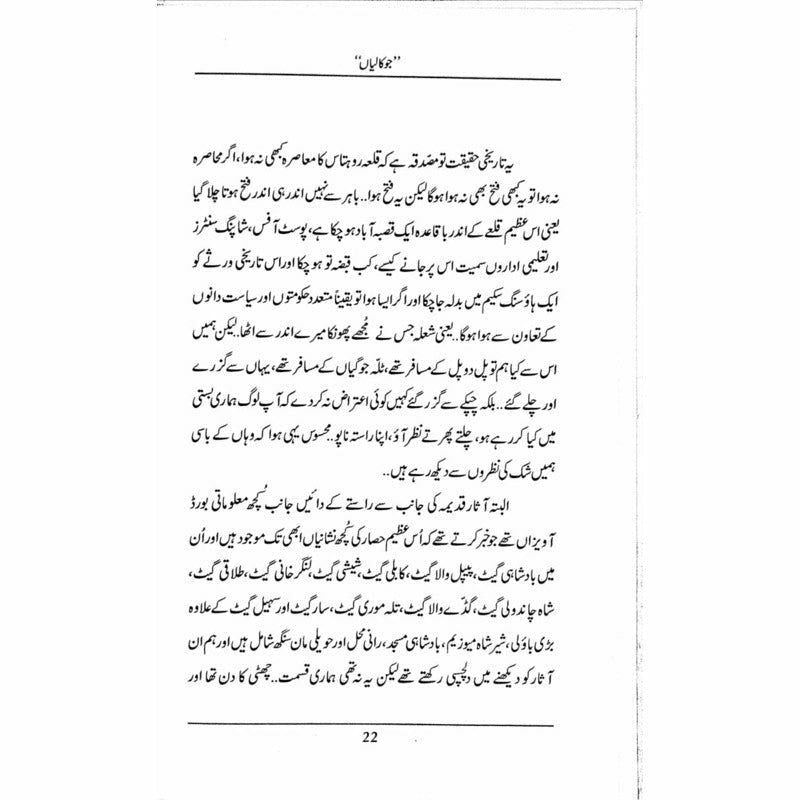 ”جوکالیاں“
یہ تاریخی حقیقت تو مصدقہ ہے کہ قلعہ روہتاس کا معاصرہ کبھی نہ ہوا، اگر محاصرہ
نہ ہوا تو یہ کبھی فتح بھی نہ ہوا ہوگا لیکن یہ فتح ہوا.. باہر سے نہیں اندر ہی اندر فتح ہوتا چلا گیا
یعنی اس عظیم قلعے کے اندر باقاعدہ ایک قصبہ آباد ہو چکا ہے، پوسٹ آفس، شاپنگ سنٹرز
اور تعلیمی اداروں سمیت اس پر جانے کیسے، کب قبضہ تو ہو چکا اور اس تاریخی ورثے کو
ایک ہاؤسنگ سکیم میں بدلہ جا چکا اور اگر ایسا ہوا تو یقیناً متعدد حکومتوں اور سیاست دانوں
کے تعاون سے ہوا ہوگا.. یعنی شعلہ جس نے مُجھے پھونکا میرے اندر سے اٹھا.. لیکن ہمیں
اس سے کیا ہم تو پل دو پل کے مسافر تھے، ٹلّہ جوگیاں کے مسافر تھے، یہاں سے گزرے
اور چلے گئے.. بلکہ چپکے سے گزر گئے کہیں کوئی اعتراض نہ کر دے کہ آپ لوگ ہماری بستی
میں کیا کر رہے ہو، چلتے پھرتے نظر آؤ، اپنا راستہ ناپو.. محسوس یہی ہوا کہ وہاں کے باسی
ہمیں شک کی نظروں سے دیکھ رہے ہیں..
البتہ آثار قدیمہ کی جانب سے راستے کے دائیں جانب کُچھ معلوماتی بورڈ
آویزاں تھے جو خبر کرتے تھے کہ اُس عظیم حصار کی کُچھ نشانیاں ابھی تک موجود ہیں اور اُن
میں بادشاہی گیٹ، پیپل والا گیٹ، کابلی گیٹ، شیشی گیٹ، لنگر خانی گیٹ، طلاقی گیٹ،
شاہ چاندولی گیٹ، گڈے والا گیٹ، تلہ موری گیٹ، سار گیٹ اور سہیل گیٹ کے علاوہ
بڑی باؤلی، شیر شاہ میوزیم، بادشاہی مسجد، رانی محل اور حویلی مان سنگھ شامل ہیں اور ہم ان
آثار کو دیکھنے میں دلچسپی رکھتے تھے لیکن یہ نہ تھی ہماری قسمت.. چھٹی کا دن تھا اور
22